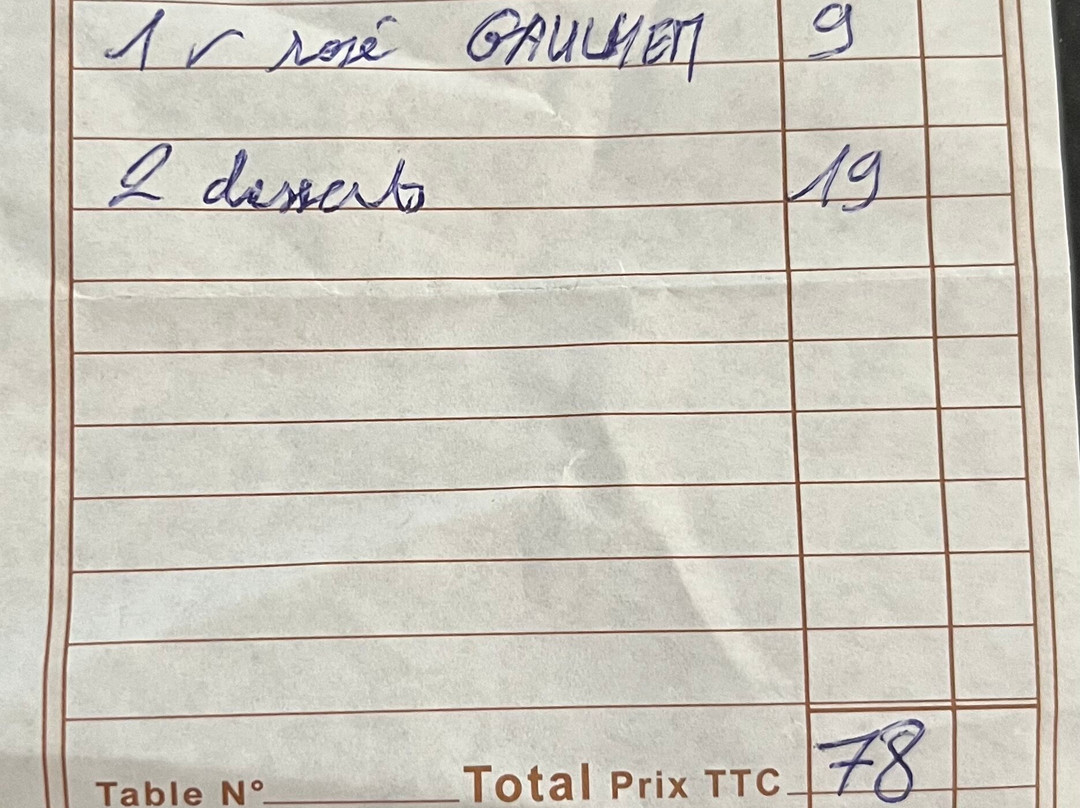 1 v rosé GAULMEM 9
2 desserts 19
Table N° Total Prix TTC 78